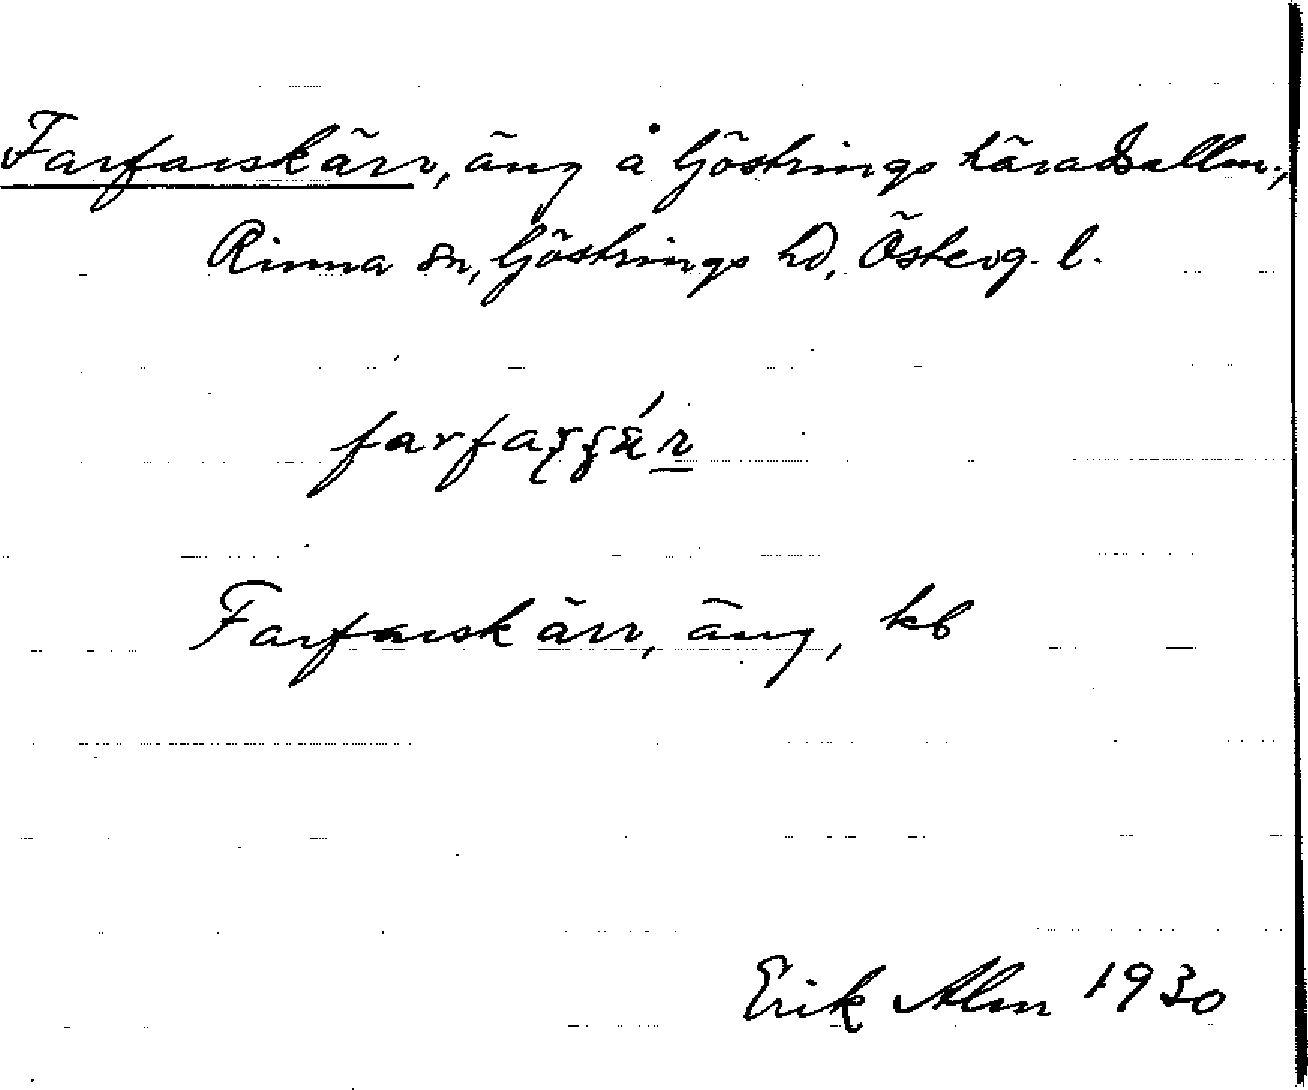 Farfarskärr, äng å Göstrings häradsallm.,
Rinna sn, Göstrings hd, Österg. l.
Farfarskärr, äng, kb
Erik Alm 1930